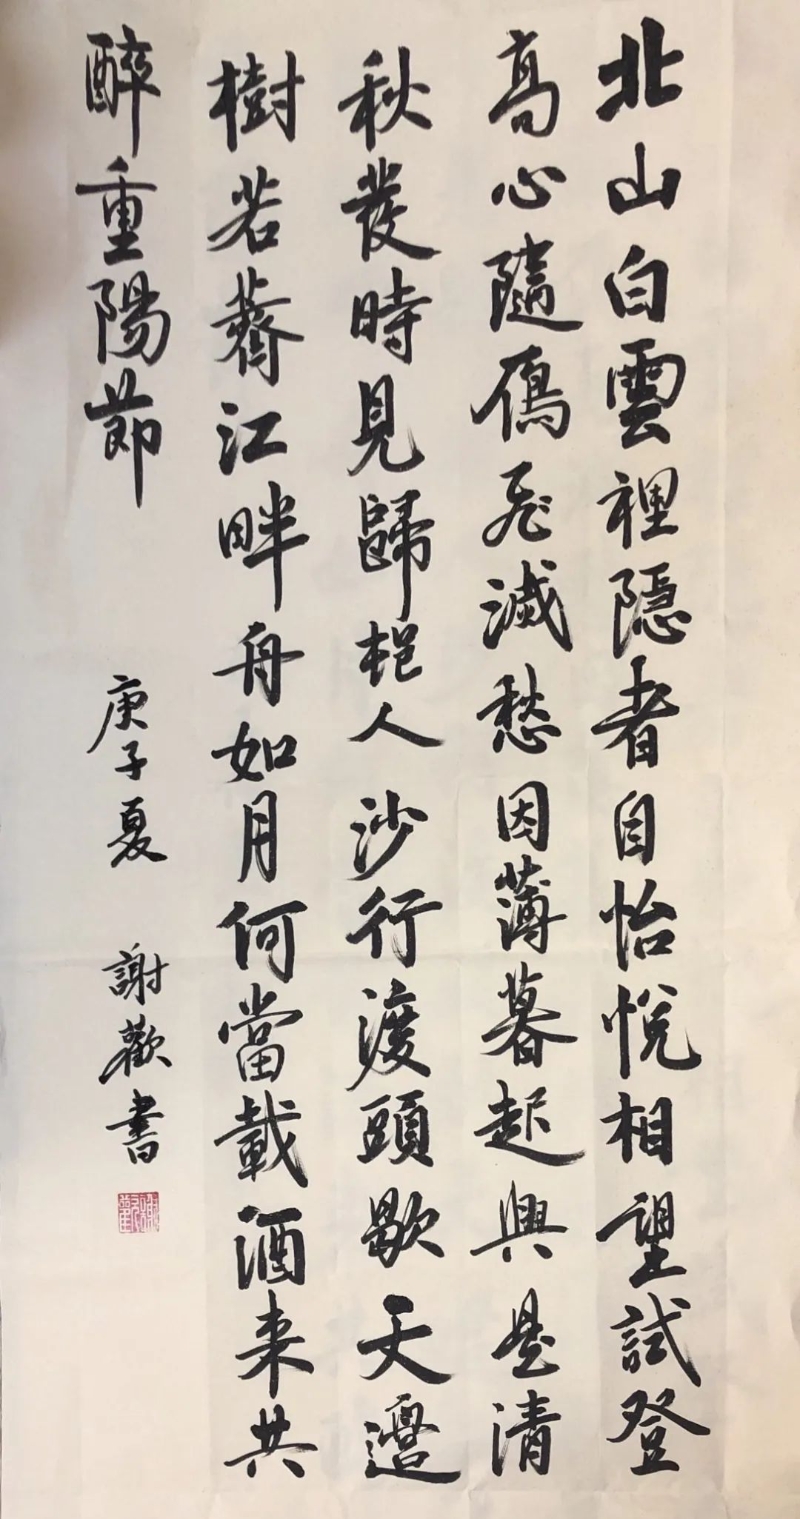 北山白雲裡隱者自怡悅相望試登
高心隨鴈飛滅愁因薄暮起興是清
秋發時見歸邨人沙行渡頭歇天邊
樹若薺江畔舟如月何當載酒来共
醉重陽節
庚子夏 謝歡書